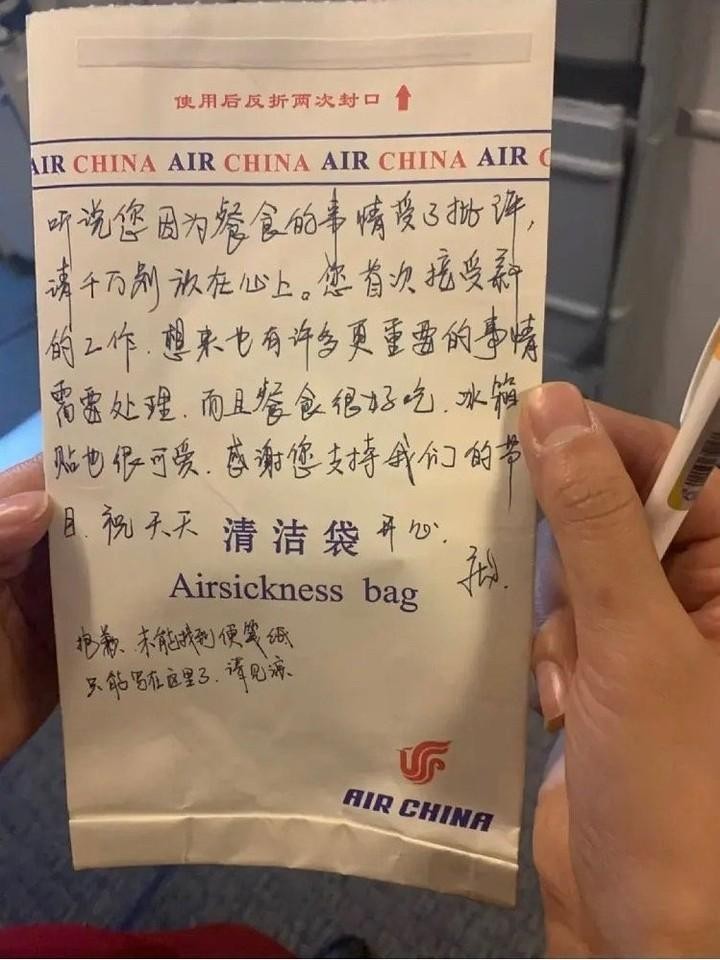 使用后反折两次封口
AIR CHINA AIR CHINA AIR CHINA AIR C
听说您因为餐食的事情受了批评，
请千万别放在心上。您首次接受新
的工作，想来也有许多更重要的事情
需要处理，而且餐食很好吃，冰箱
贴也很可爱，感谢您支持我们的节
目，祝天天 清洁袋 开心。
Airsickness bag
抱歉，未能找到便笺纸
只能写在这里了，请见谅
AIR CHINA